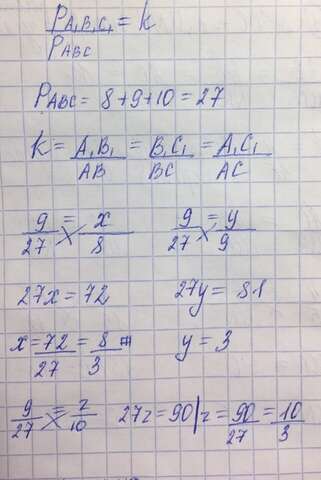 P A₁B₁C₁ / P ABC = k
P ABC = 8+9+10=27
k = A₁B₁/AB = B₁C₁/BC = A₁C₁/AC
9/27 = x/8   9/27 = y/9
27x = 72   27y = 81
x = 72/27 = 8/3   y = 3
9/27 = z/10   27z=90 | z = 90/27 = 10/3